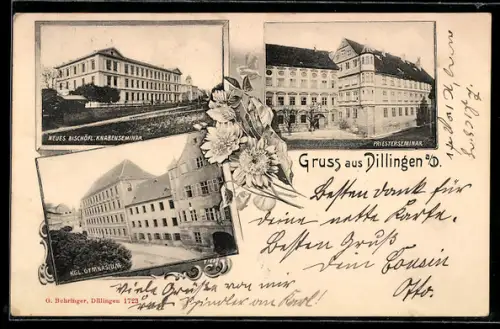 NEUES BISCHÖFL. KNABENSEMINAR.
PRIESTERSEMINAR.
Gruss aus Dillingen a/D.
KGL. GYMNASIUM.
Besten Dank für
deine nette Karte.
Besten Gruß
Dein Cousin
Otto.
Viele Grüße von mir
an Karl!
G. Buhringer, Dillingen 1723